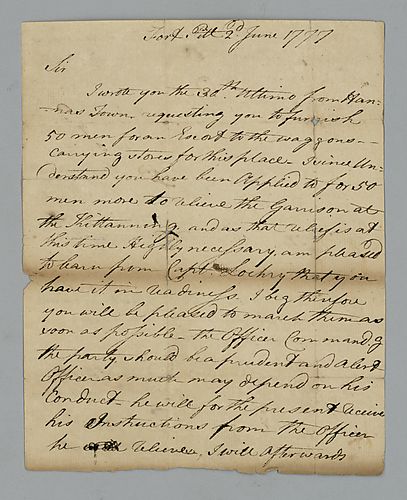 Fort Pitt 2d June 1777
Sir
I wrote you the 30th ultimo from Han-
nas Town requesting you to furnish
50 men for an Escort to the waggons
carrying stores for this place I since Un-
derstand you have been Applied to for 50
men more to relieve the Garrison at
the Kittanning, and as that relief is at
this time Highly necessary, am pleased
to learn from Capt. Lochry that you
have it in readiness. I beg therefore
you will be pleased to march them as
soon as possible the Officer Command.g
the party should be a prudent and alert
Officer as much may depend on his
Conduct - he will for the present receive
his Instructions from the Officer
he relieves, I will afterwards